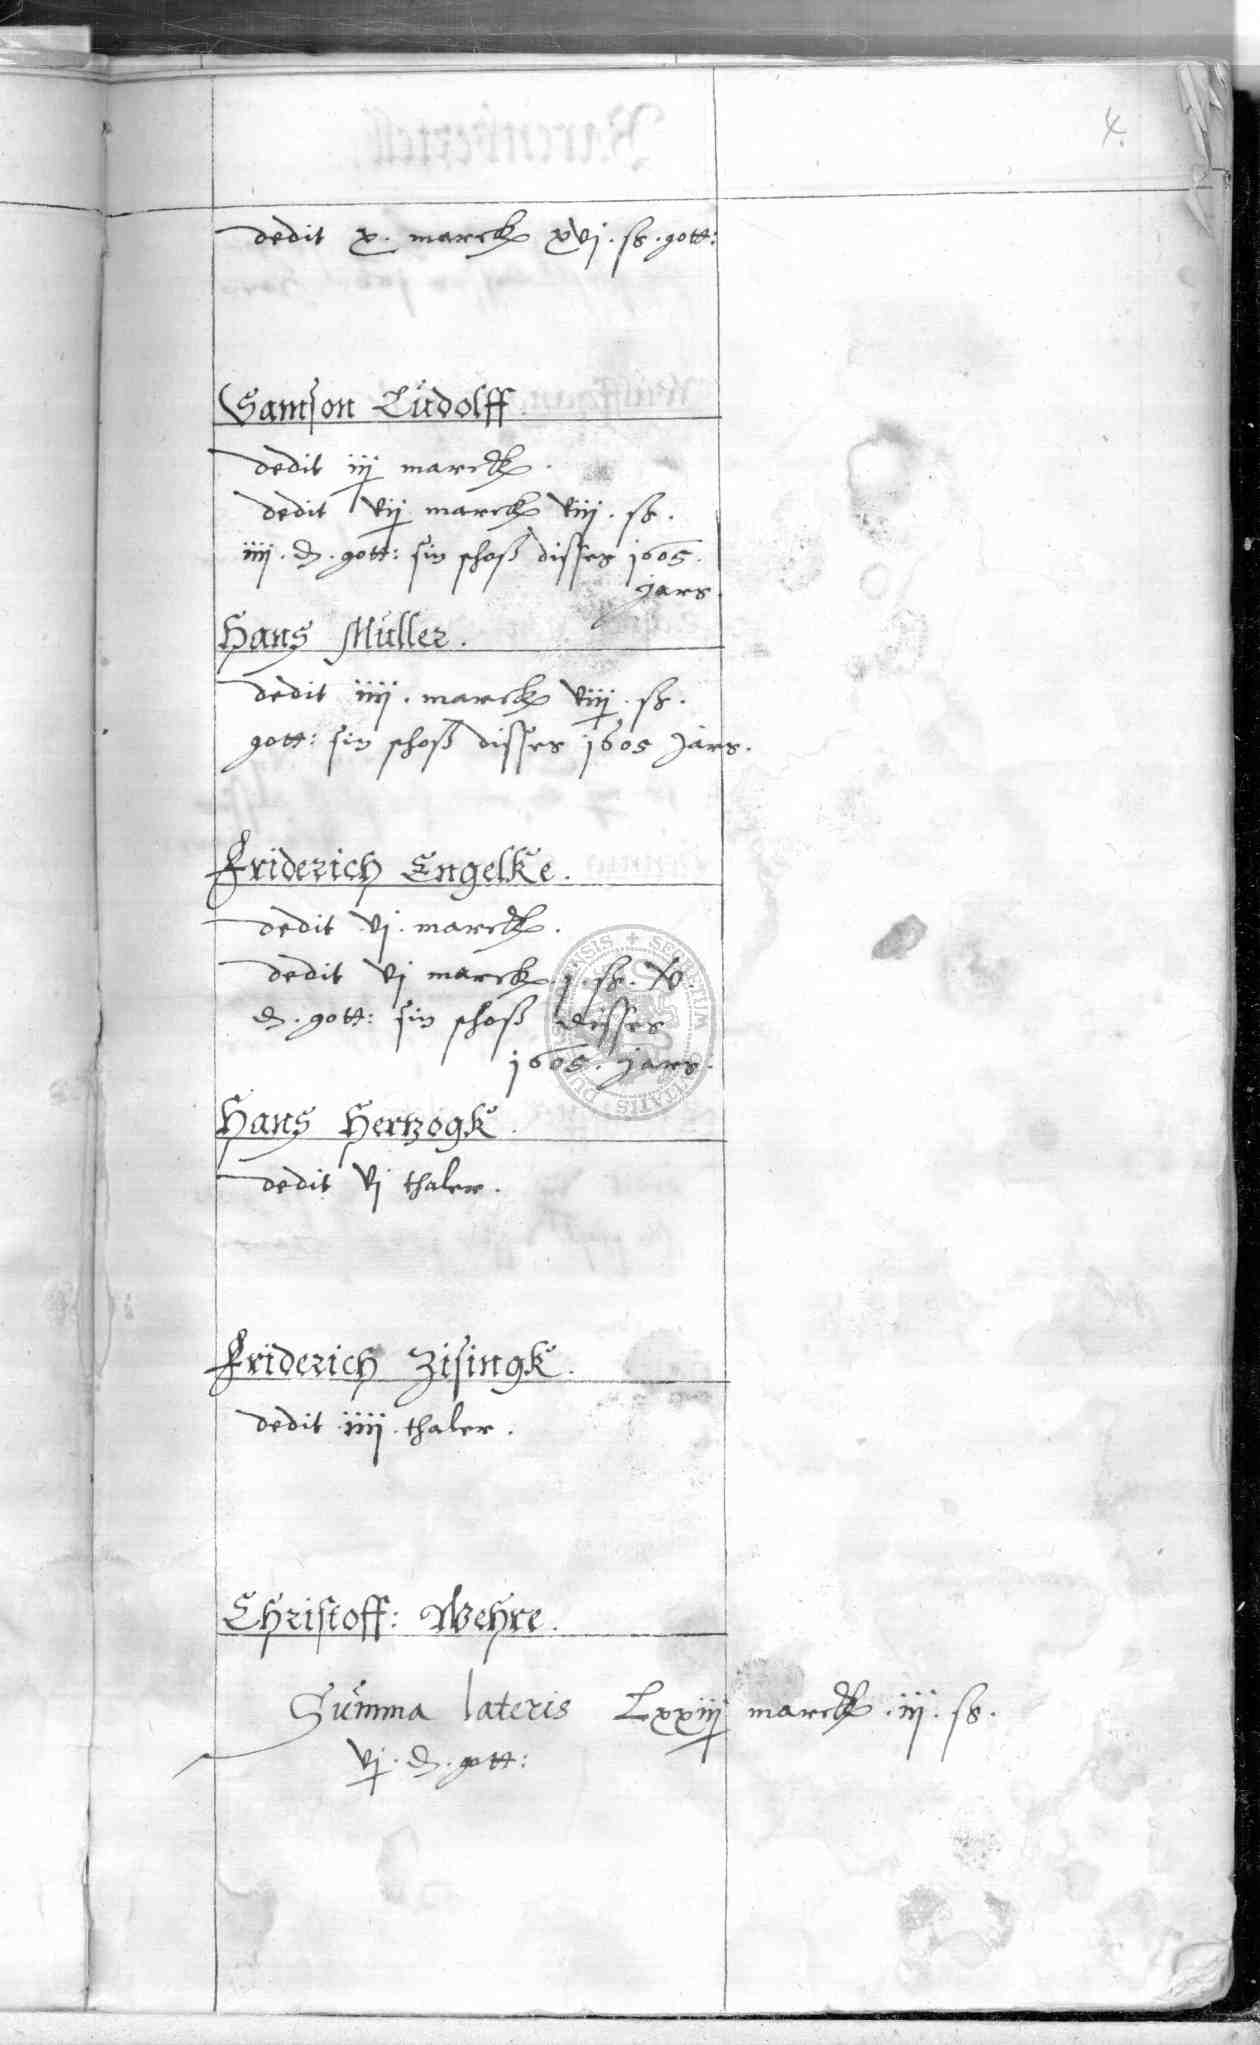 4.
dedit x. marck xvj. ß. gott:
Samson Lüdolff
dedit iij marck.
dedit vij marck viij. ß.
iiij. d. gott: sin schoß disses 1605.
jars.
Hans Müller.
dedit iiij. marck viij. ß.
gott: sin schoß disses 1605 Jars.
Friderich Engelke.
dedit vj. marck.
dedit vj marck j. ß. v.
d. gott: sin schoß disses
1605. jars.
Hans Hertzogk.
dedit vj thaler.
Friderich Zisingk.
dedit iiij. thaler.
Christoff: Wehre.
Summa lateris Lxxiij marck. iij. ß.
vj. d. gott:
SECRETUM CIVITATIS DUDERSTADENSIS